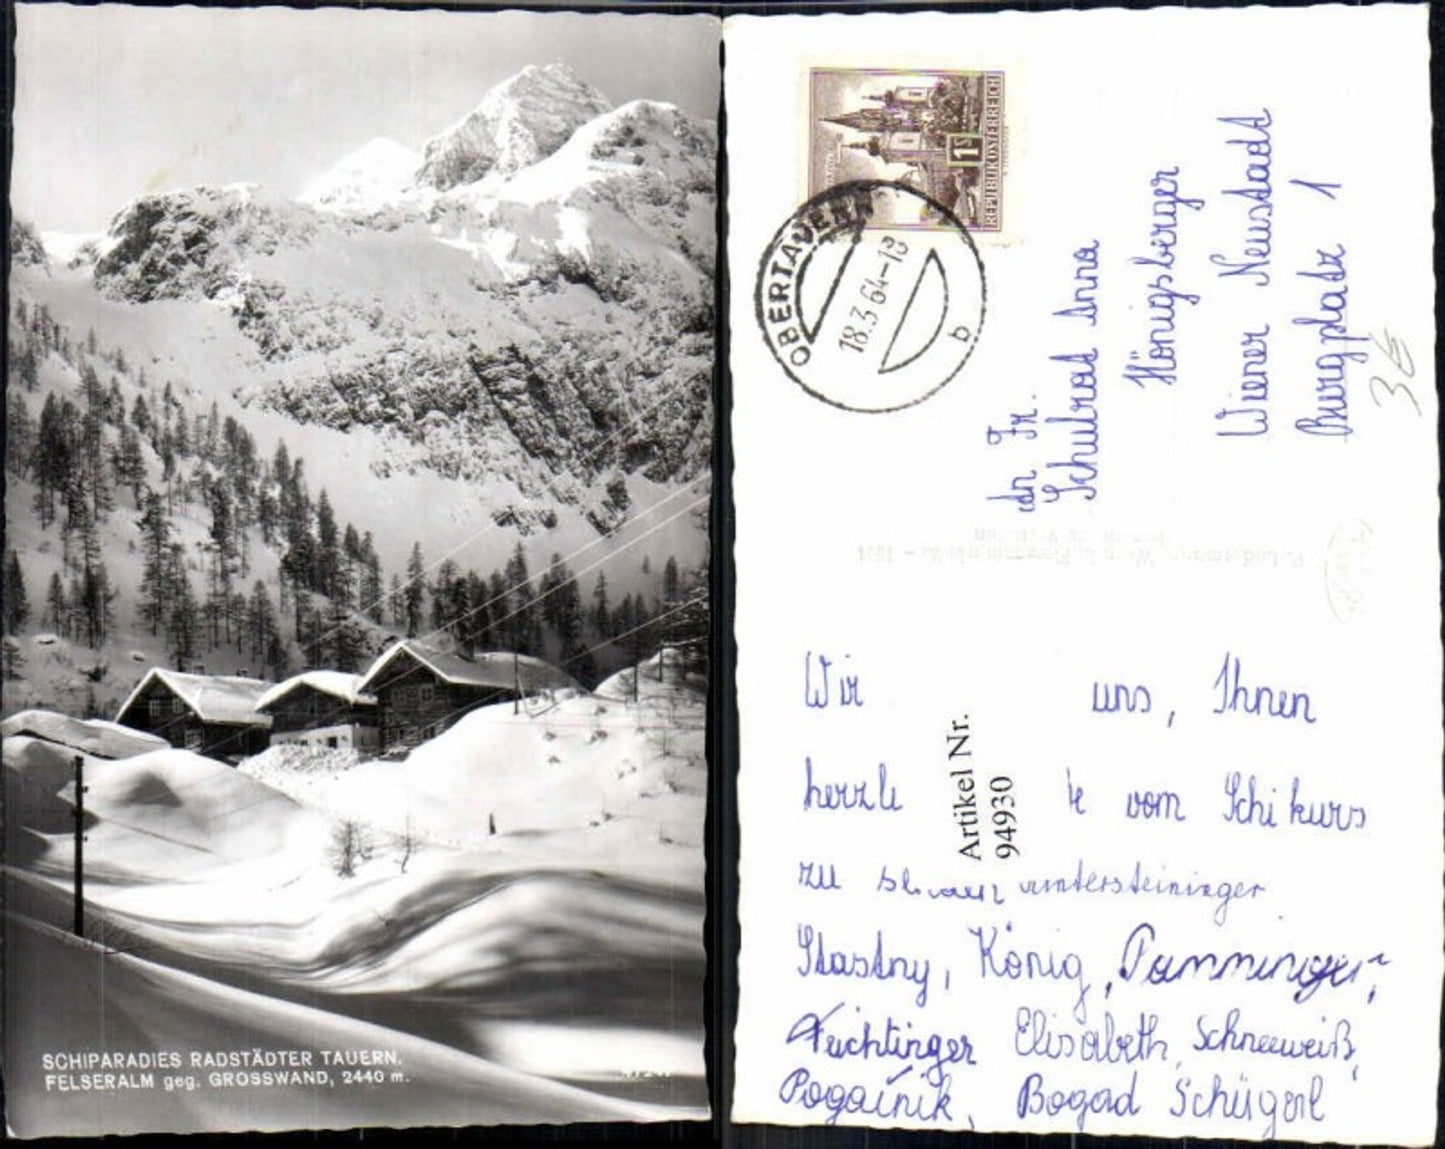 SCHIPARADIES RADSTÄDTER TAUERN.
FELSERALM geg. GROSSWAND, 2440 m.
REPUBLIK ÖSTERREICH
1S
OBERTAUERN
18.3.64-13
b
An Fr.
Schulrat Anna
Hönigsberger
Wiener Neustadt
Burgplatz 1
Wir uns, Ihnen
herzli vom Schikurs
zu
Artikel Nr.
94930
Stastny, König, Pamminger,
Feichtinger Elisabeth, Schneeweiß,
Pogačnik, Bogad Schügerl